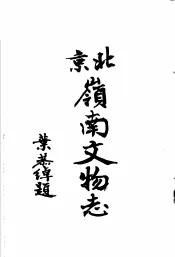 北京
嶺南文物志
葉恭綽題